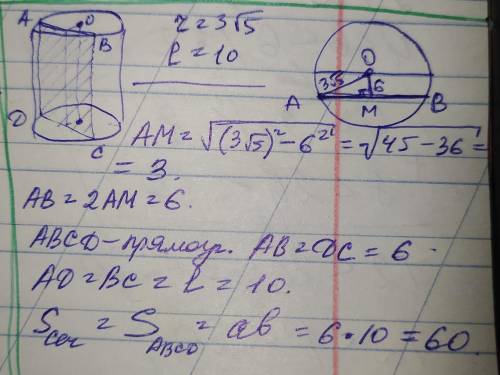 A O B
D C
r = 3√5
l = 10
O
3√5 6
A M B
AM = √((3√5)² − 6²) = √(45 − 36) =
= 3.
AB = 2AM = 6.
ABCD – прямоуг. AB = DC = 6
AD = BC = l = 10.
Sсеч = SABCD = ab = 6 • 10 = 60.